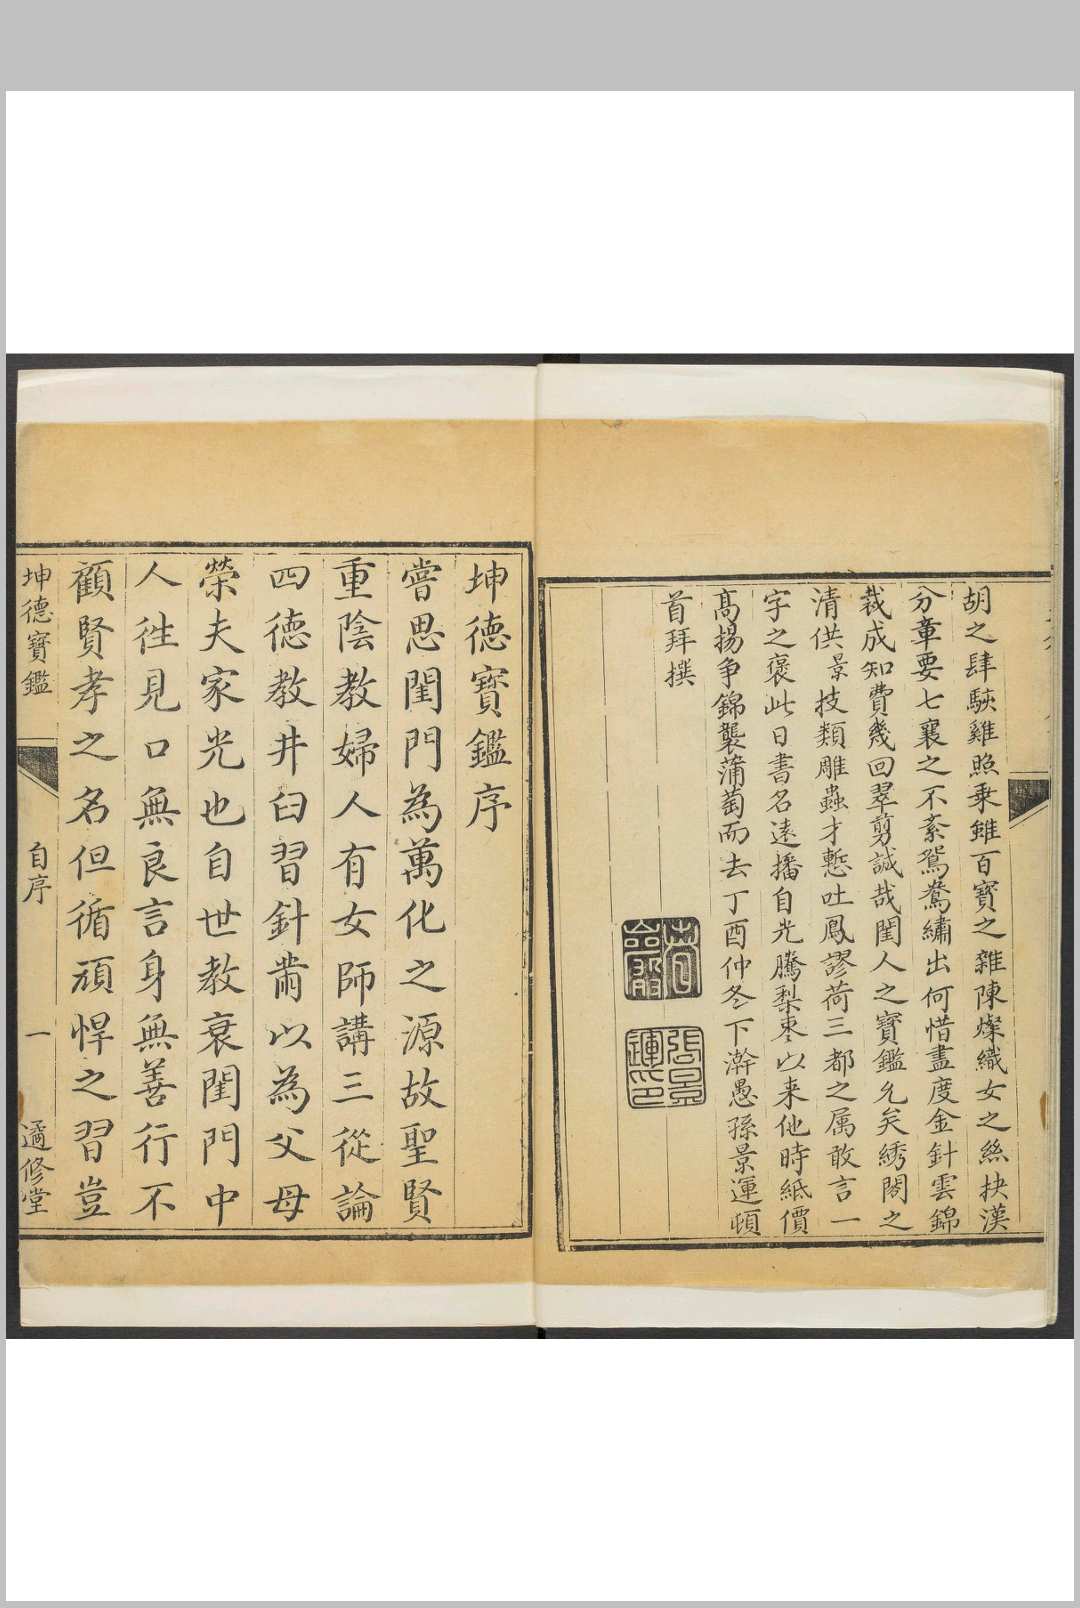 胡之肆駃雞照乗雖百寶之雜陳燦織女之絲抉漢
分章要七襄之不紊鴛鴦繡出何惜盡度金針雲錦
裁成知費幾回翠剪誠哉閨人之寶鑑允矣綉閣之
清供景技類雕蟲才慙吐鳳謬荷三都之属敢言一
字之褒此日書名遠播自光騰梨枣以来他時紙價
髙揚争錦襲蒲萄而去丁酉仲冬下澣愚孫景運頓
首拜撰
坤德寶鑑序
嘗思閨門為萬化之源故聖賢
重陰教婦人有女師講三從論
四德教井臼習針黹以為父母
榮夫家光也自世教衰閨門中
人徃見口無良言身無善行不
顧賢孝之名但循頑悍之習豈
坤德寶鑑
自序
一
遹修堂